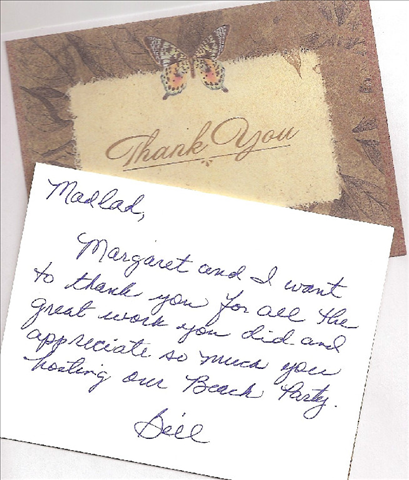 Thank You
Madlad,
Margaret and I want
to thank you for all the
great work you did and
appreciate so much you
hosting our Beach Party.
Bill